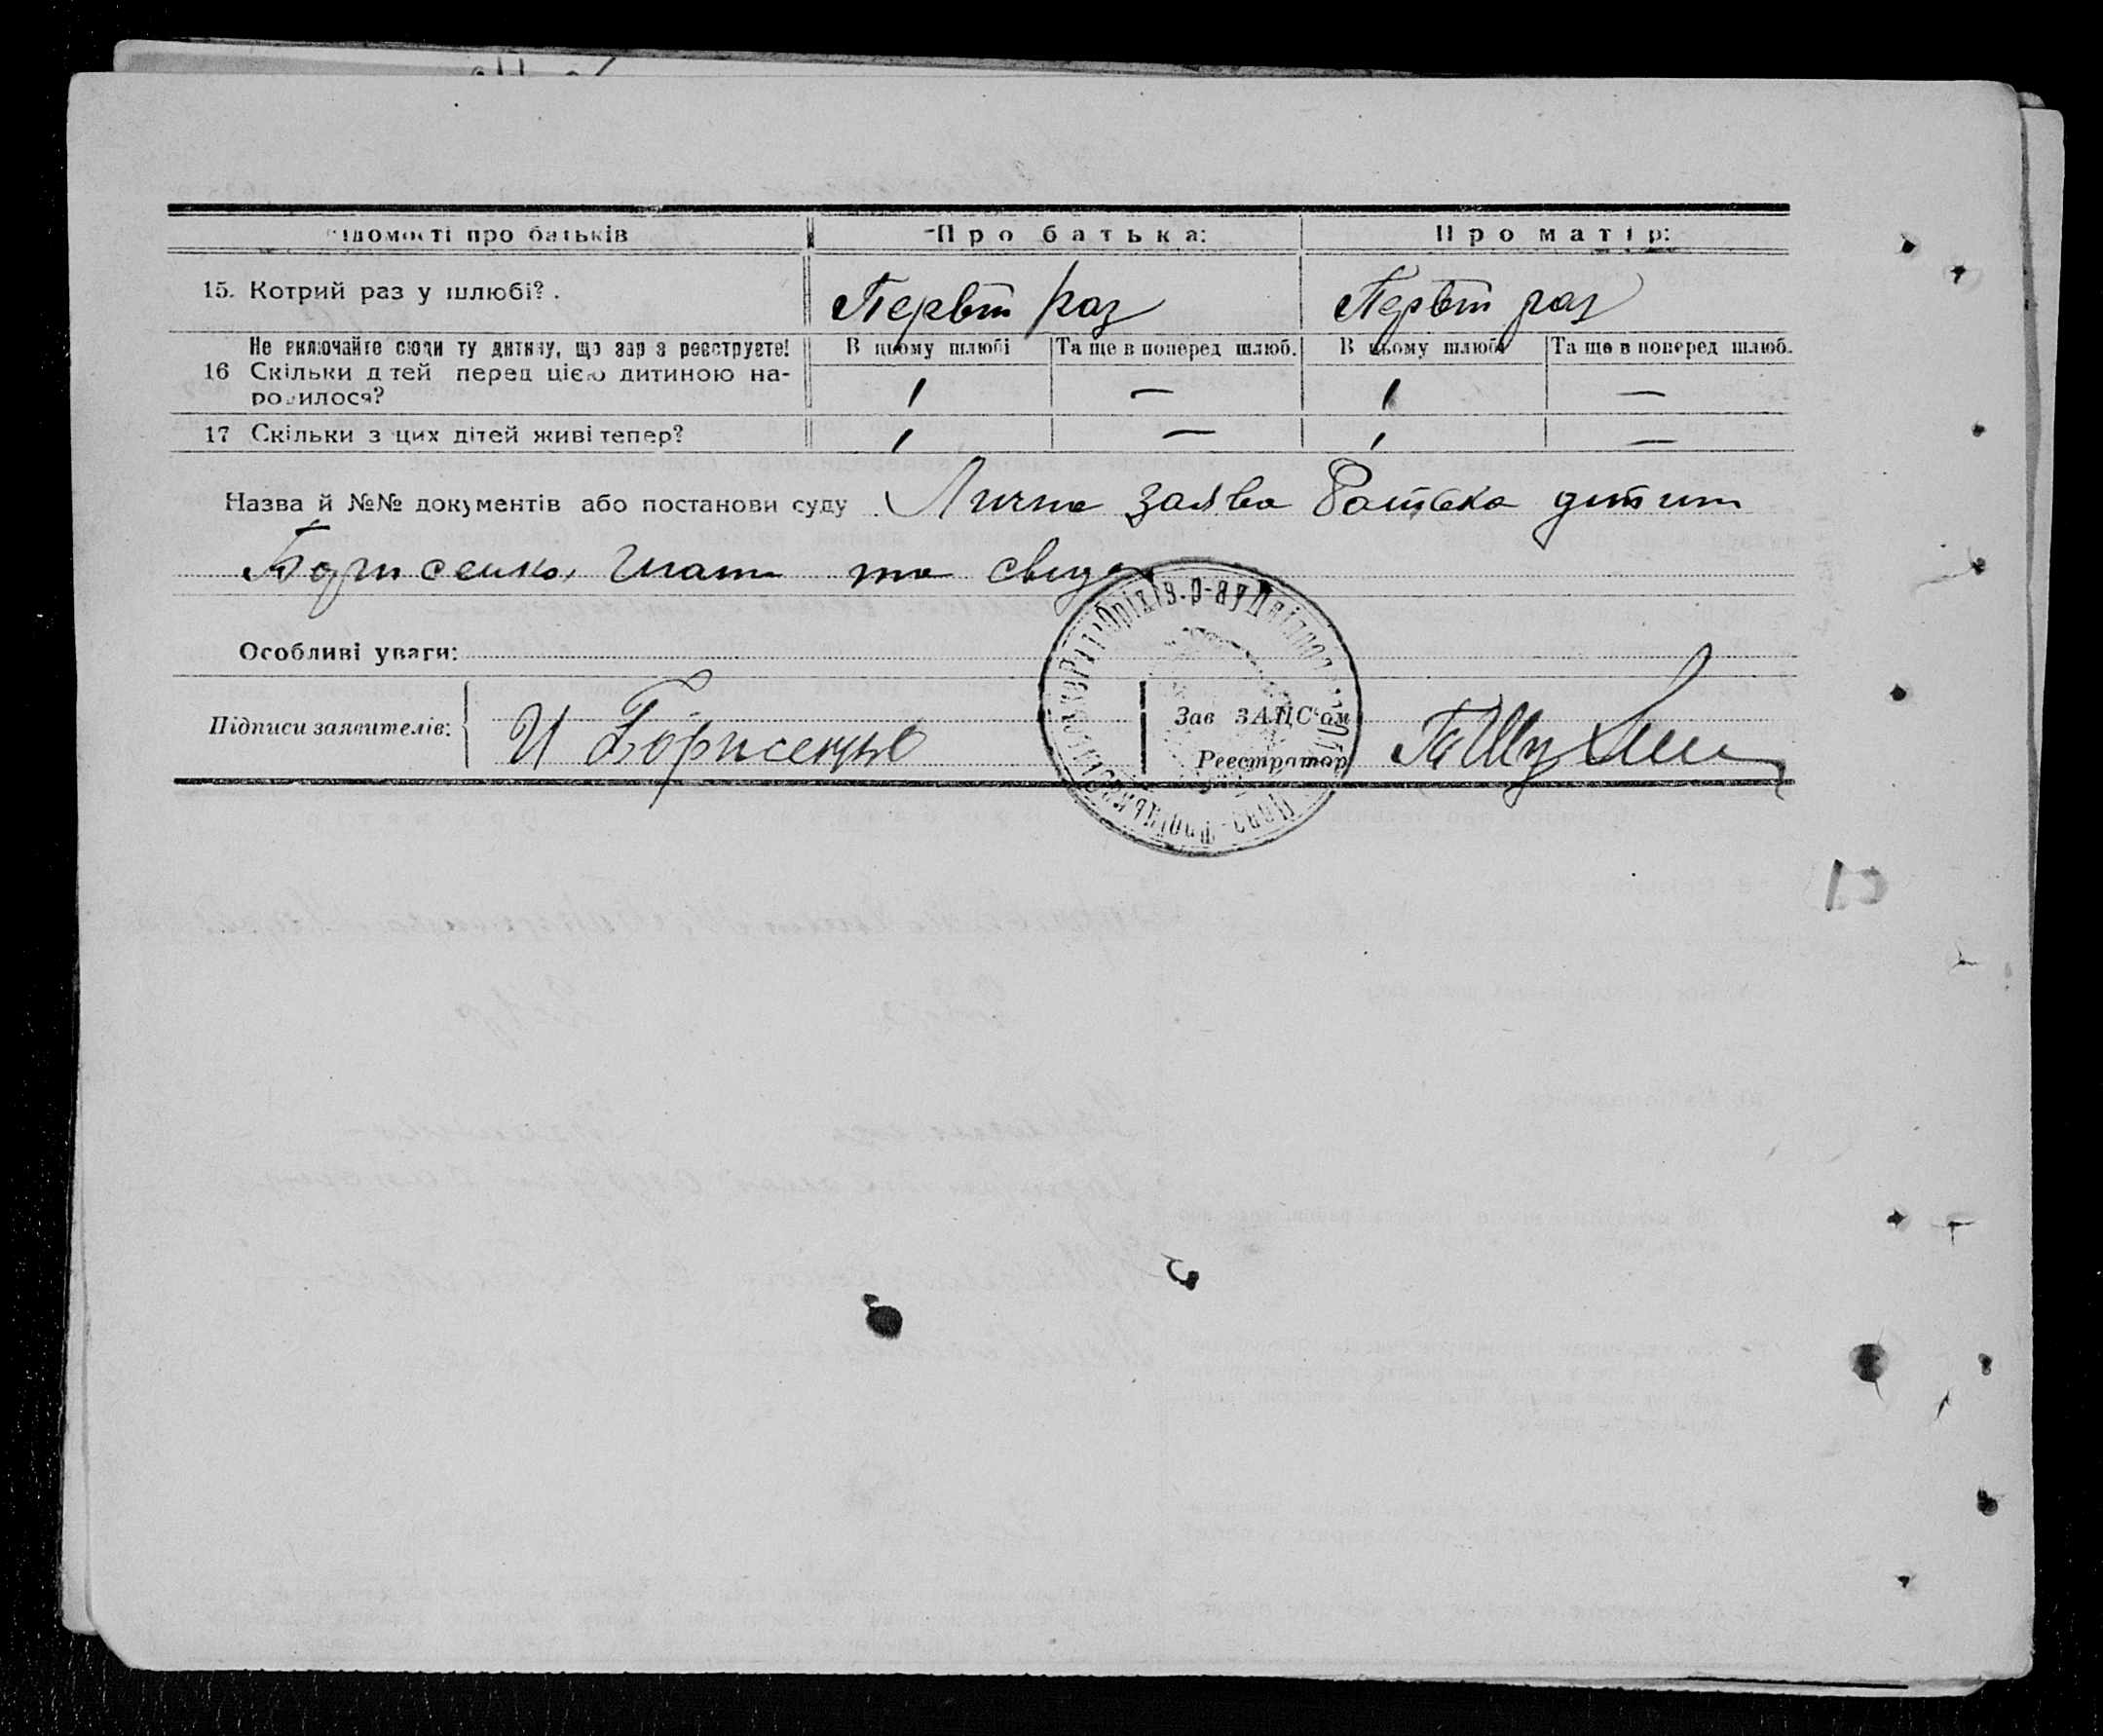 Відомості про батьків Про батька: Про матір:
15. Котрий раз у шлюбі? Первый раз Первый раз
Не включайте сюди ту дитину, що зараз реєструєте! В цьому шлюбі Та ще в поперед шлюб. В цьому шлюбі Та ще в поперед шлюб.
16 Скільки дітей перед цією дитиною на-
родилося? 1 — 1 —
17 Скільки з цих дітей живі тепер? 1 — 1 —
Назва й №№ документів або постанови суду Лична заява батька дитини
Борисенко та
Особливі уваги:
Підписи заявителів: И Борисенко Зав ЗАЦС'ом
Реєстратор